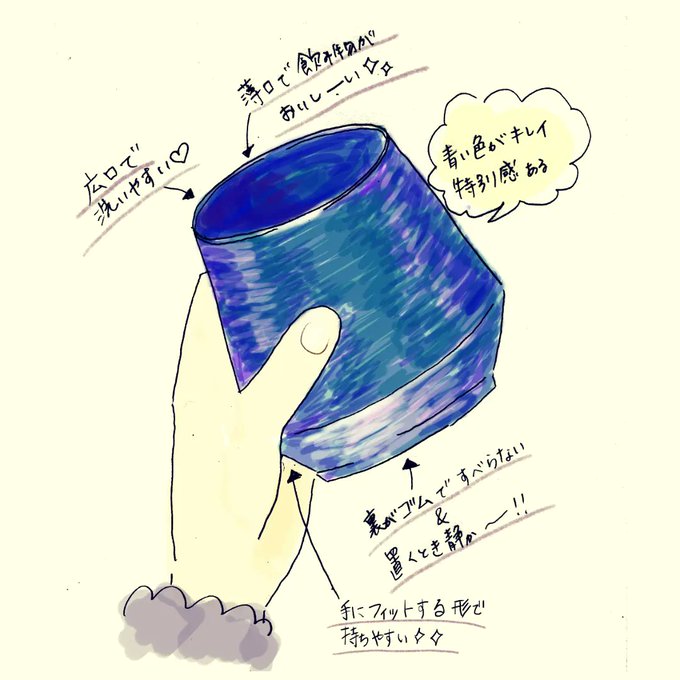 薄口で飲み物が
おいしーい✧✧
広口で
洗いやすい♡
青い色がキレイ
特別感ある
裏がゴムですべらない
&
置くとき静か〜!!
手にフィットする形で
持ちやすい✧✧